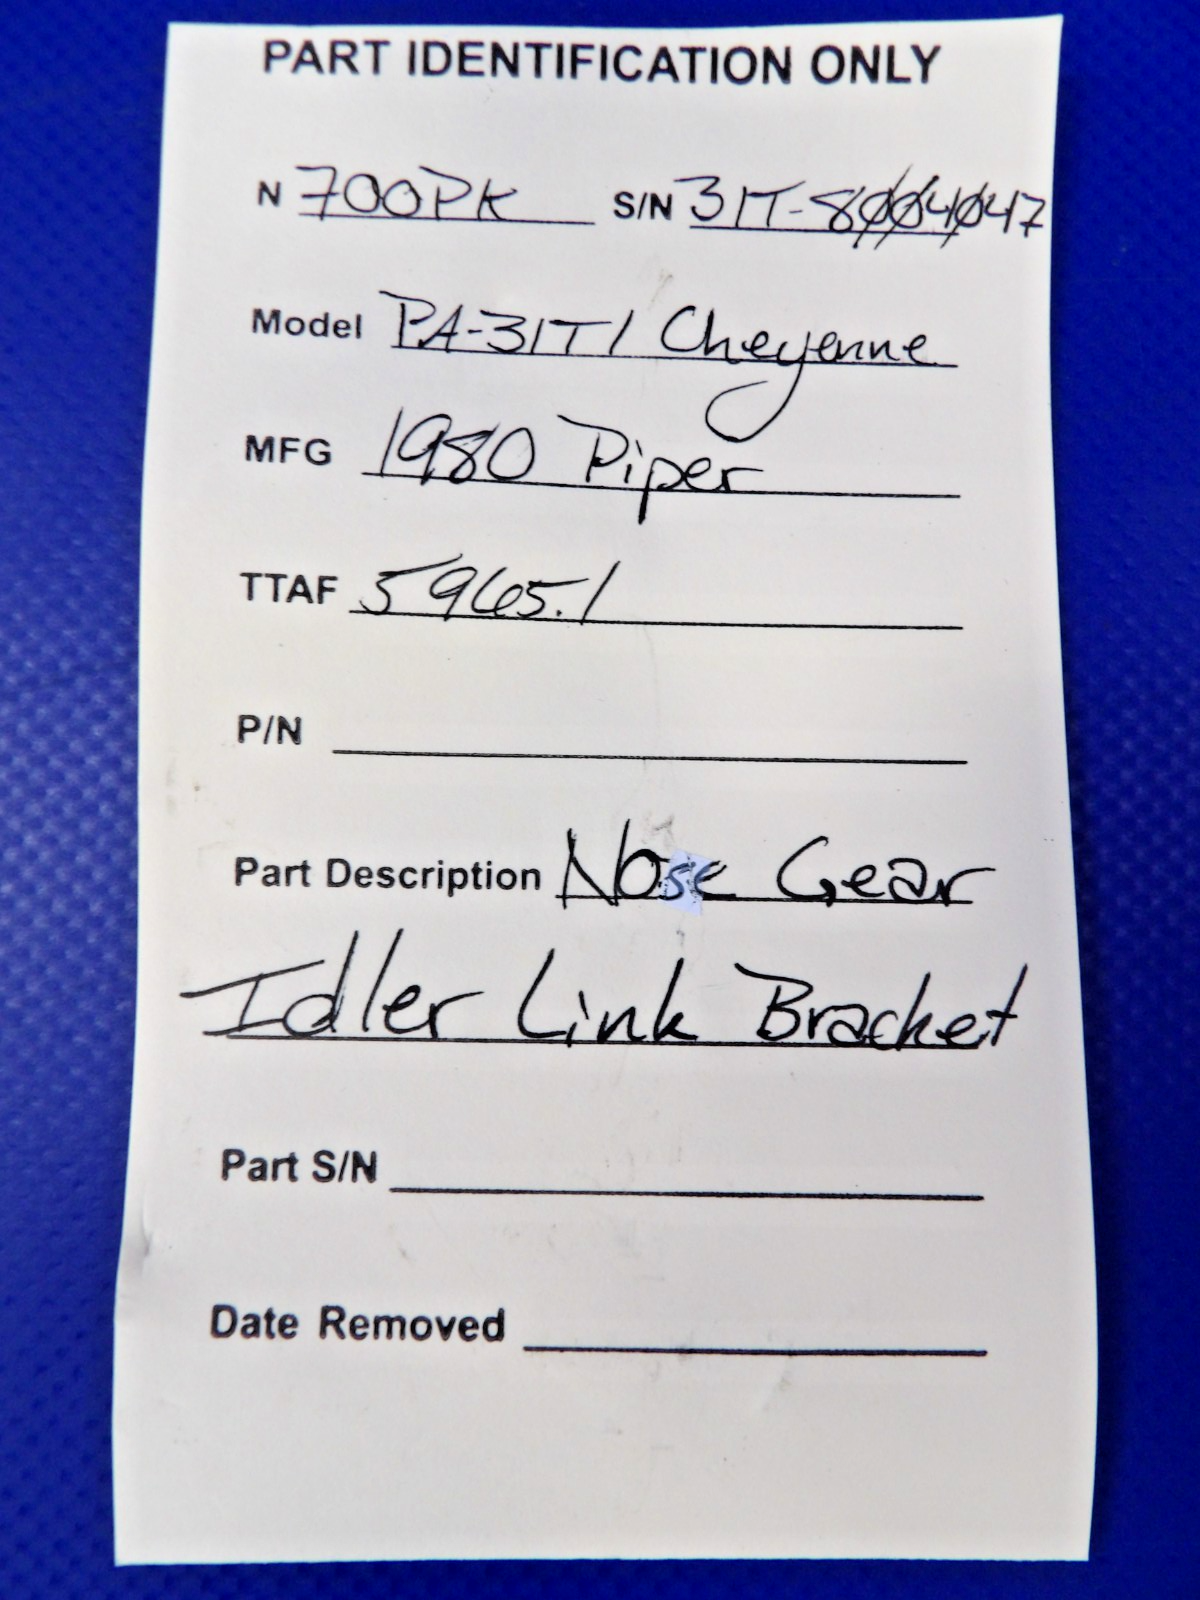 PART IDENTIFICATION ONLY
N 700PK S/N 31T-8004047
Model PA-31T1 Cheyenne
MFG 1980 Piper
TTAF 5965.1
P/N
Part Description Nose Gear
Idler Link Bracket
Part S/N
Date Removed